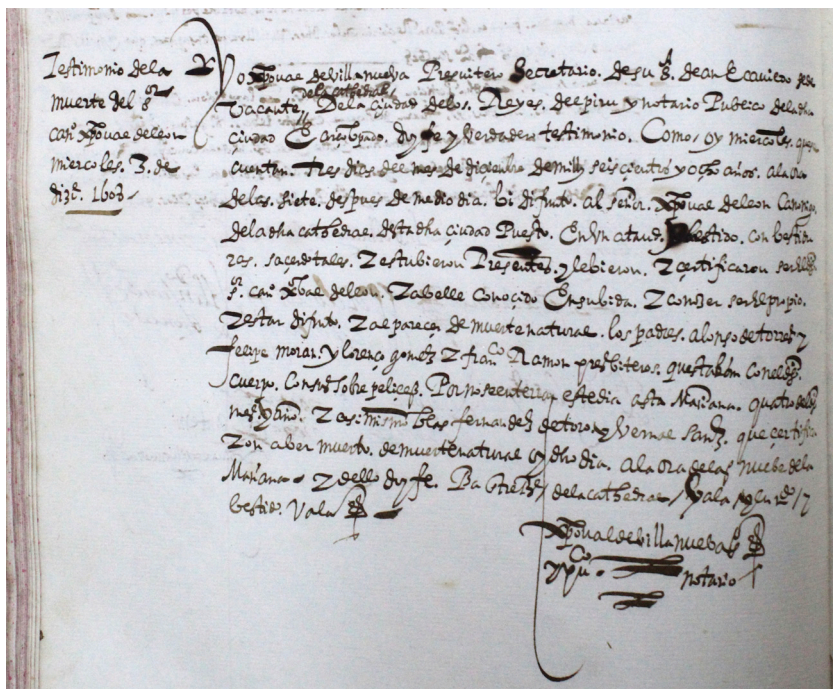 Testimonio dela
muerte del sr
can.º xpoual de leon
miercoles. 3. de
dizᵉ. 1608
Yo xpoual de villanueua Presuitero Secretario. de su sª. dean E caui{l}do sede
Vacante, dela cathedral De la çiudad delos. Reyes. del piru y notario Publico dela dha
çiudad E arçobpado. doy fe y Verdadero testimonio. Como oy miercoles. que se
cuentan. Tres dias del mes de diçiembre de mill y seisçientos y ocho años. a la ora
delas. siete. despues de medio dia. bi difunto. al señor. xpoual de leon Canonigo
dela dha cathedral. desta dha çiudad Puesto. En Vn ataud. bestido. con bestidu
ras. saçerdotales. Z estubieron Presentes. y le bieron. Z çertificaron ser el dho
sr. can.º xpoual de leon. Z abelle Conoçido En su bida. Z conoçer ser el propio.
Z estar difunto. Z al pareçer de muerte natural. los padres. alonso de torres y
felipe moran. y lorenço gomez Z franco Ramon presbiteros. questaban con el dho
cuerpo. Con sus sobrepeliçes. Por no se enterrar este dia asta Mañana. quatro deldho
mes y año. Z asimismo blas fernandez de toro y bernal sanz. que çertifica
Z on aber muerto. de muerte natural oy dho dia. a la ora delas nuebe dela
Mañana Z dello doy fe. Ba Entre Rs / dela cathedral / Vala
bestido. Vala
xpoual de villanueua
notario